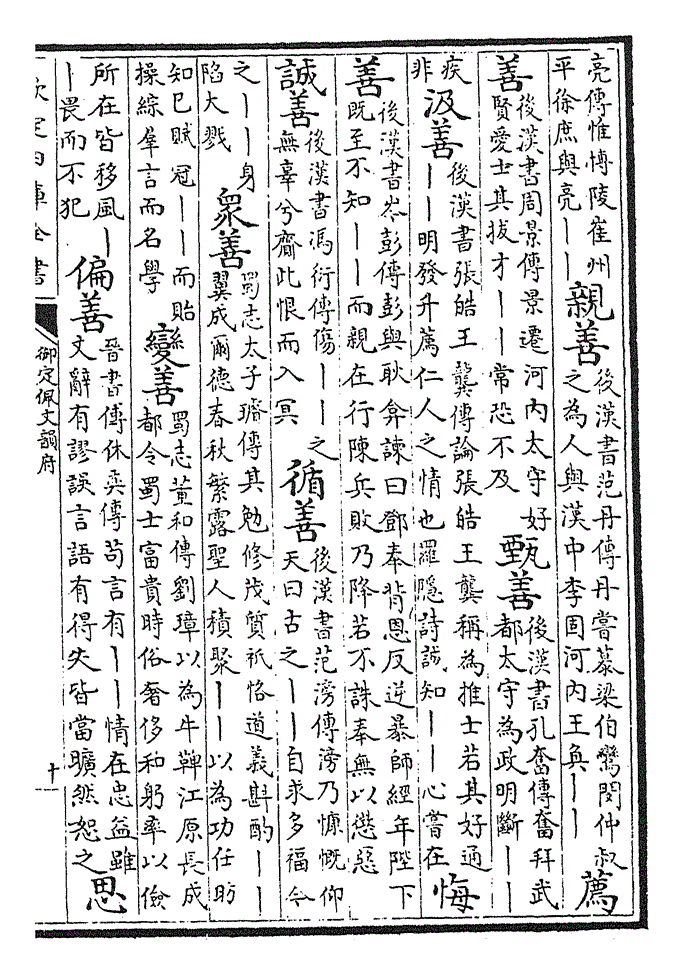 亮傳惟博陵崔州
平徐庶與亮丨丨
親善
後漢書范丹傳丹嘗慕梁伯鸞閔仲叔
之為人與漢中李固河內王奐丨丨
薦
善
後漢書周景傳景遷河內太守好
賢愛士其拔才丨丨常恐不及
甄善
後漢書孔奮傳奮拜武
都太守為政明斷丨丨
疾
非
汲善
後漢書張皓王龔傳論張皓王龔稱為推士若其好通
丨丨明發升薦仁人之情也羅隱詩誠知丨丨心嘗在
悔
善
後漢書岑彭傳彭與耿弇諫曰鄧奉背恩反逆暴師經年陛下
既至不知丨丨而親在行陳兵敗乃降若不誅奉無以懲惡
誠善
後漢書馮衍傳傷丨丨之
無辜兮齎此恨而入冥
循善
後漢書范滂傳滂乃慷慨仰
天曰古之丨丨自求多福今
之丨丨身
陷大戮
衆善
蜀志太子璿傳其勉修茂質祇恪道義斟酌丨丨
翼成爾德春秋繁露聖人積聚丨丨以為功任昉
知已賦冠丨丨而貽
操綜羣言而名學
變善
蜀志董和傳劉璋以為牛鞞江原長成
都令蜀士富貴時俗奢侈和躬率以儉
所在皆移風丨
丨畏而不犯
偏善
晉書傅休奕傳苟言有丨丨情在忠益雖
文辭有謬誤言語有得失皆當曠然恕之
思
欽定四庫全書
御定佩文韻府
十